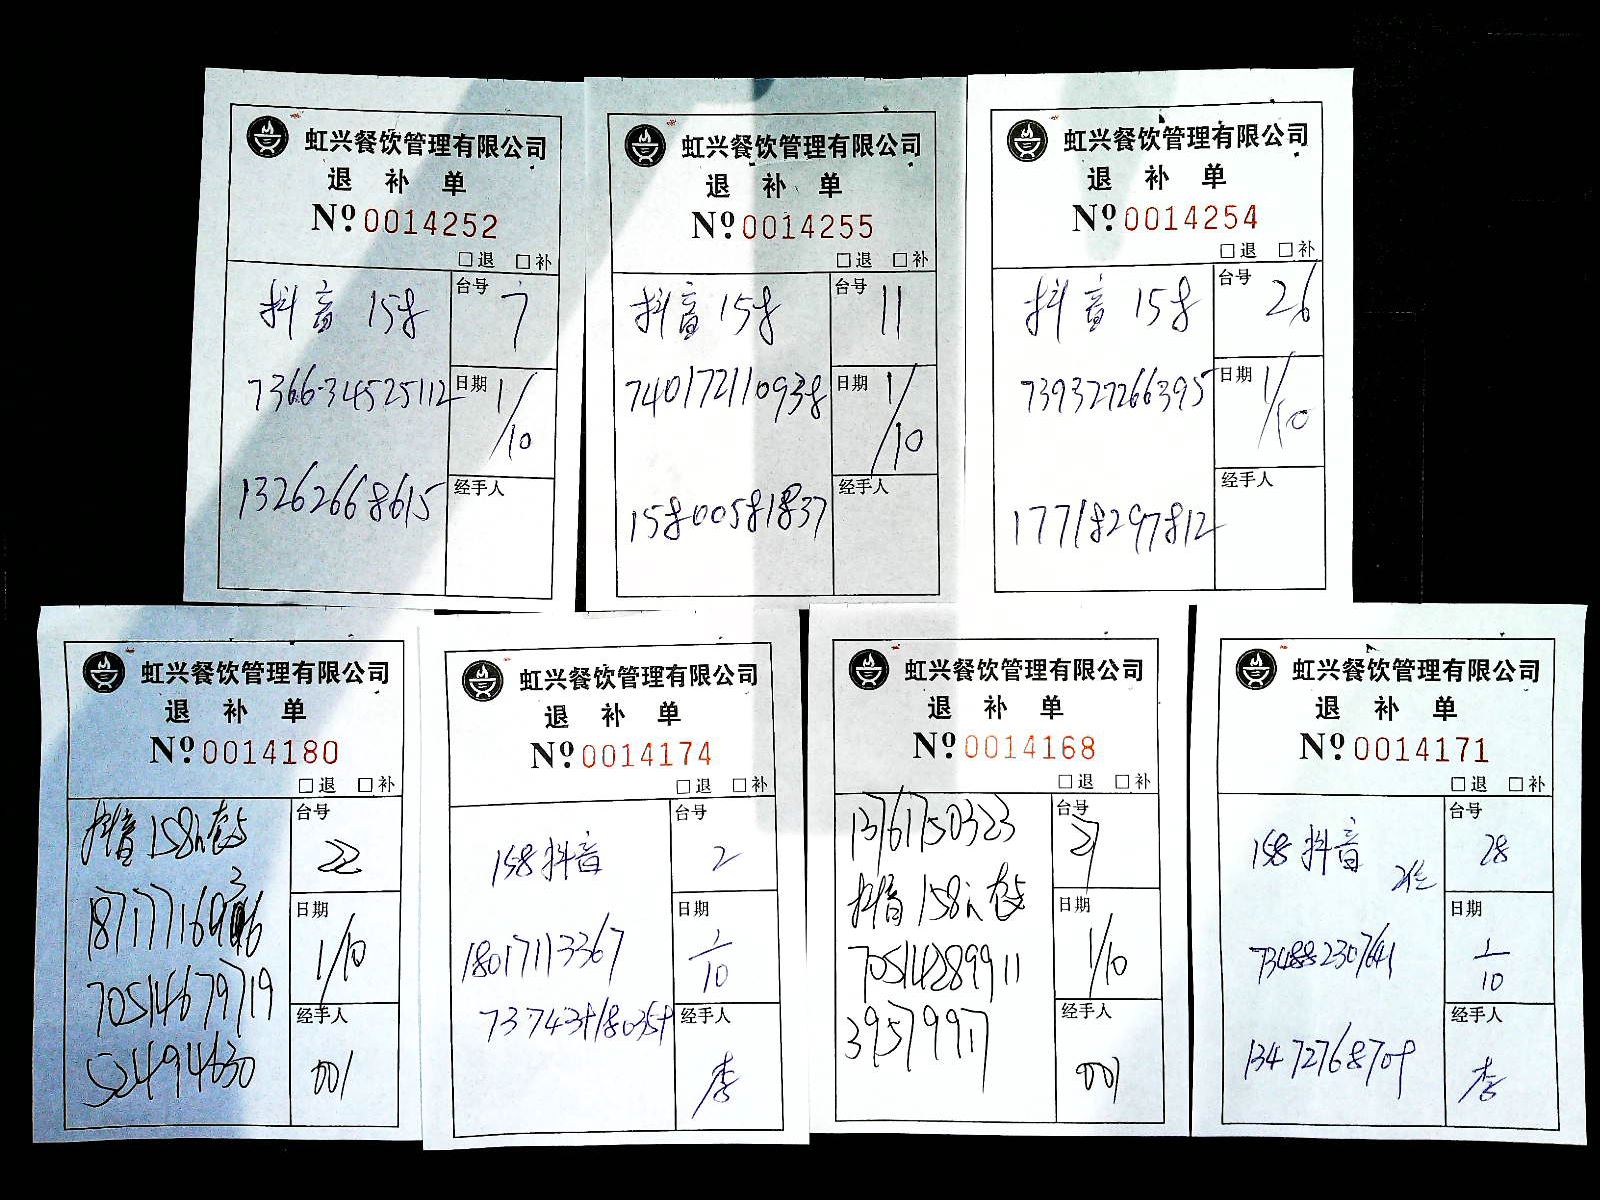 虹兴餐饮管理有限公司
退 补 单
Nº 0014252
□退 □补
抖音 158
台号 7
736634525112
日期 1/10
13262668615
经手人
虹兴餐饮管理有限公司
退 补 单
Nº 0014255
□退 □补
抖音 158
台号 11
740172110938
日期 1/10
15800581837
经手人
虹兴餐饮管理有限公司
退 补 单
Nº 0014254
□退 □补
抖音 158
台号 26
739327266395
日期 1/10
17718297812
经手人
虹兴餐饮管理有限公司
退 补 单
Nº 0014180
□退 □补
抖音 158
台号 22
日期 1/10
70514679719
524914630
经手人 001
虹兴餐饮管理有限公司
退 补 单
Nº 0014174
□退 □补
158 抖音
台号 2
18017113367
日期 1/10
经手人 李
虹兴餐饮管理有限公司
退 补 单
Nº 0014168
□退 □补
13761750323
台号
抖音 158
70514289911
日期 1/10
39579917
经手人 001
虹兴餐饮管理有限公司
退 补 单
Nº 0014171
□退 □补
158 抖音
台号 28
734882307641
日期 1/10
13472768709
经手人 李